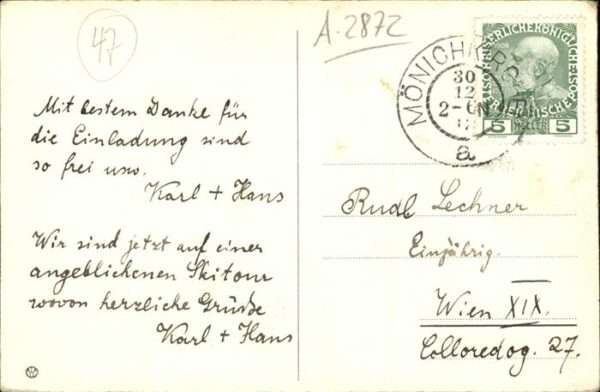 47
A-2872
KAISERLICHE KÖNIGLICHE
ÖSTERREICHISCHE
5 5
MÖNICHK
30
12
2-6N
a
Mit bestem Danke für
die Einladung sind
so frei usw.
Karl + Hans
Wir sind jetzt auf einer
angeblichenen Skitour
wovon herzliche Grüße
Karl + Hans
Rudl Lechner
Einjährig.
Wien XIX.
Colloredog. 27.